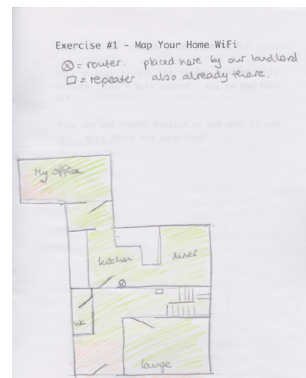 Exercise #1 - Map Your Home WiFi
⊗ = router. placed here by our landlord
□ = repeater also already there
My office
kitchen
diner
WC
lounge